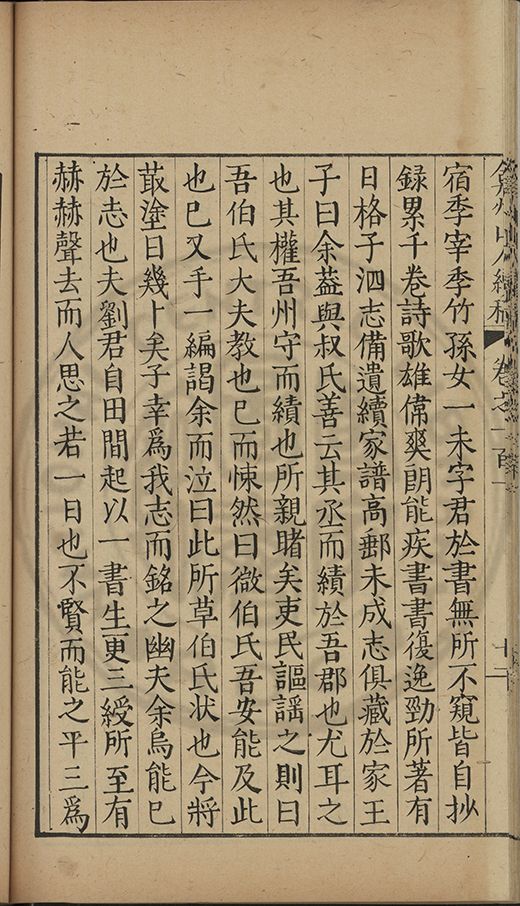 弇州山人續稿 卷之一百 十二
宿季宰季竹孫女一未字君於書無所不窺皆自抄
録累千卷詩歌雄偉爽朗能疾書書復逸勁所著有
日格子泗志備遺續家譜高郵未成志俱藏於家王
子曰余蓋與叔氏善云其丞而績於吾郡也尤耳之
也其權吾州守而績也所親睹矣吏民謳謡之則曰
吾伯氏大夫教也已而悚然曰微伯氏吾安能及此
也已又手一編謁余而泣曰此所草伯氏状也今將
菆塗日幾卜矣子幸爲我志而銘之幽夫余烏能已
於志也夫劉君自田間起以一書生更三綬所至有
赫赫聲去而人思之若一日也不賢而能之乎三爲